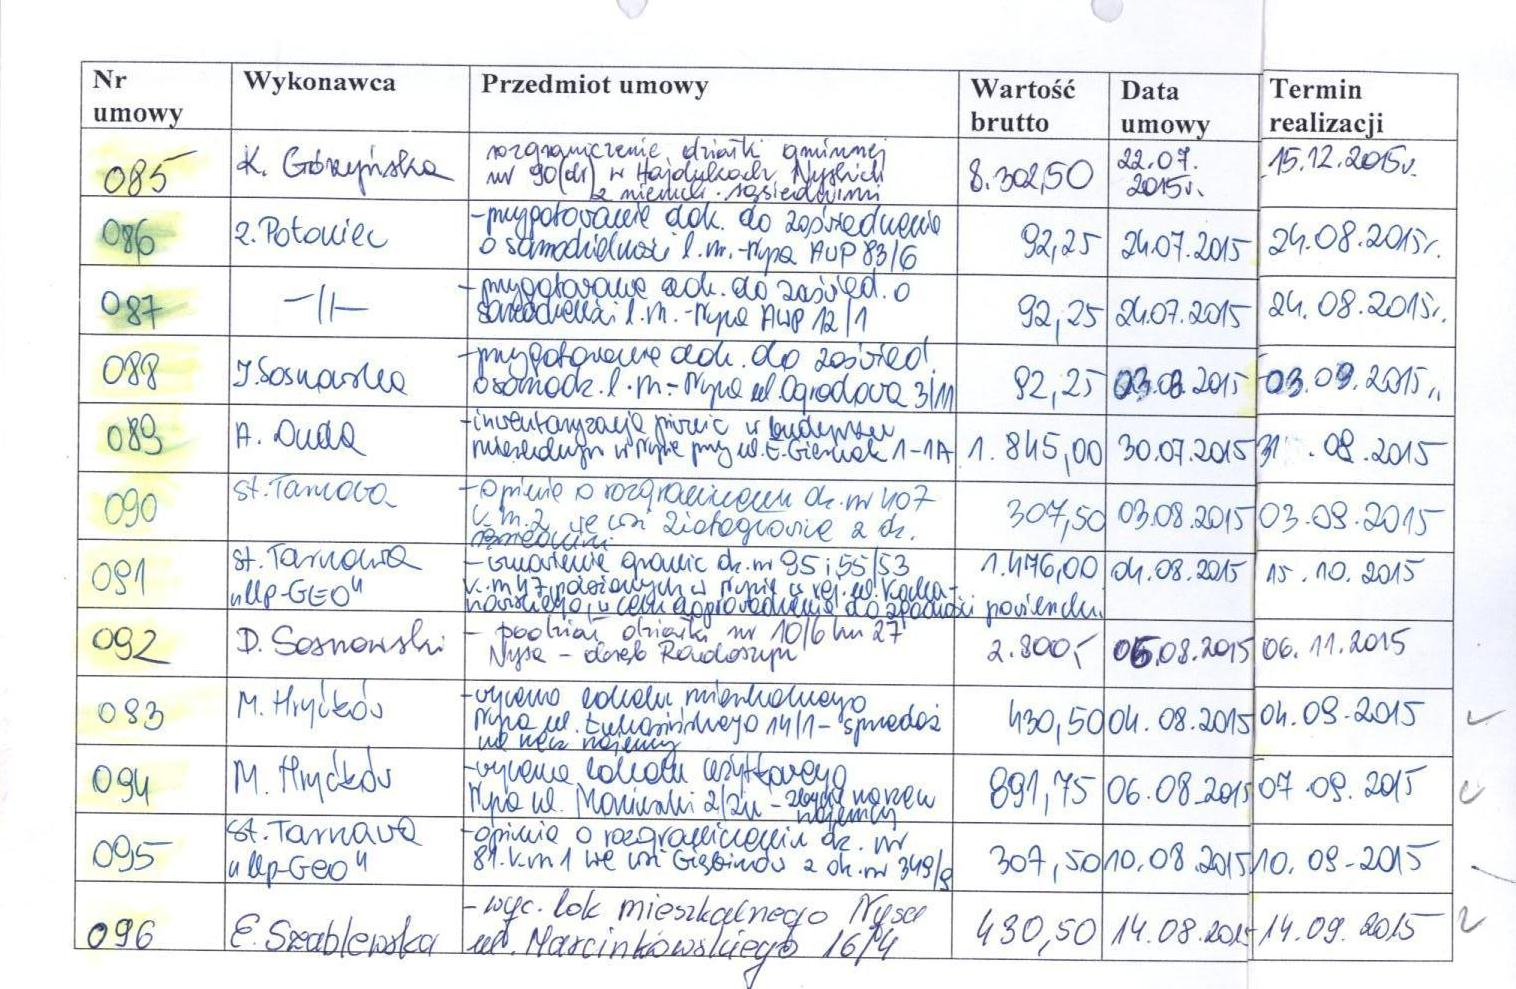 Nr umowy Wykonawca Przedmiot umowy Wartość brutto Data umowy Termin realizacji
085 K. Górzyńska rozgraniczenie działki gminnej
nr 90(dr) w Hajdukach Nyskich
z nieruch. sąsiednimi 8.302,50 22.07.2015r. 15.12.2015r.
086 Z. Potoniec - przygotowanie dok. do zaświadczenia
o samodzielności l.m. - Nysa AWP 83/6 92,25 24.07.2015 24.08.2015r.
087 -||- - przygotowanie dok. do zaświad. o
samodzielności l.m. - Nysa AWP 12/1 92,25 24.07.2015 24.08.2015r.
088 J. Sosnowska - przygotowanie dok. do zaświad.
o samodz. l.m - Nysa ul. Ogrodowa 3/11 92,25 03.08.2015 03.09.2015r.
089 A. Duda - inwentaryzacja piwnic w budynku
mieszkalnym w Nysie przy ul. E. Gierczak 1-1A 1.845,00 30.07.2015 31.08.2015
090 St. Tarnawa - opinie o rozgraniczeniu dz. nr 407
k.m.2 we wsi Złotogłowice z dz.
sąsiednimi 307,50 03.08.2015 03.09.2015
091 St. Tarnawa
"Up-GEO" - wznowienie granic dz. nr 95 i 55/53
k.m 47 położonych w Nysie w rej. ul.
w celu doprowadzenia do zgodności powierzchn. 1.476,00 04.08.2015 15.10.2015
092 D. Sosnowski - podział działki nr 10/6 km 27
Nysa - obręb Radoszyn 2.800,- 05.08.2015 06.11.2015
093 M. Hryćków - wycena lokalu mieszkalnego
Nysa ul. Łukasińskiego 14/1 - sprzedaż
na rzecz najemcy 430,50 04.08.2015 04.09.2015
094 M. Hryćków - wycena lokalu użytkowego
Nysa ul. Moniuszki 2/2u - zbycie na rzecz
najemcy 891,75 06.08.2015 07.09.2015
095 St. Tarnawa
"Up-GEO" - opinia o rozgraniczeniu dz. nr
81 k.m 1 we wsi Głębinów z dz. nr 349/9 307,50 10.08.2015 10.09-2015
096 E. Szablewska - wyc. lok mieszkalnego Nysa
ul. Marcinkowskiego 16/4 430,50 14.08.2015 14.09.2015